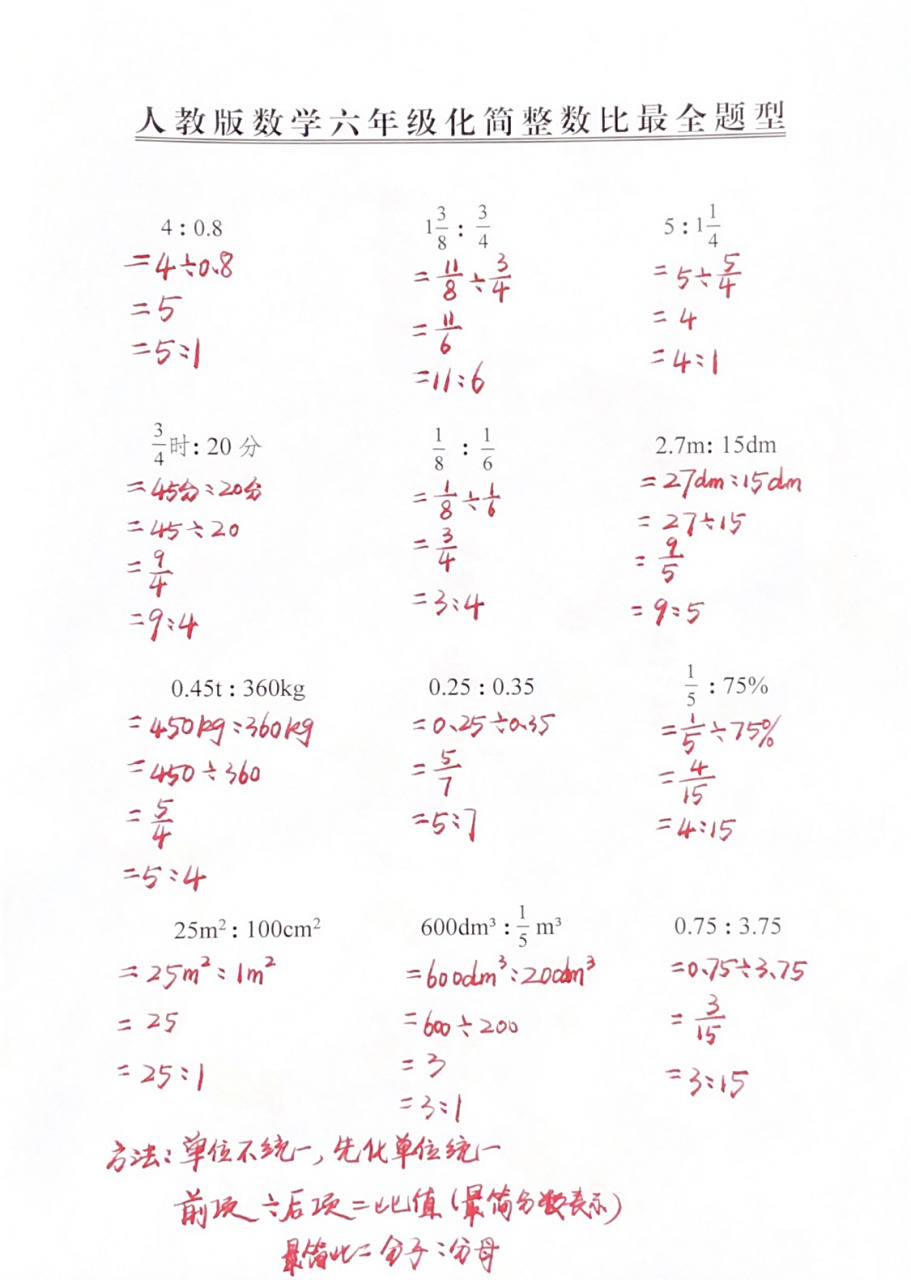 人教版数学六年级化简整数比最全题型
4 : 0.8
=4÷0.8
=5
=5:1
1 3/8 : 3/4
=11/8÷3/4
=11/6
=11:6
5 : 1 1/4
=5÷5/4
=4
=4:1
3/4时: 20 分
=45分:20分
=45÷20
=9/4
=9:4
1/8 : 1/6
=1/8÷1/6
=3/4
=3:4
2.7m: 15dm
=27dm:15dm
=27÷15
=9/5
=9:5
0.45t : 360kg
=450kg:360kg
=450÷360
=5/4
=5:4
0.25 : 0.35
=0.25÷0.35
=5/7
=5:7
1/5 : 75%
=1/5÷75%
=4/15
=4:15
25m² : 100cm²
=25m²:1m²
=25
=25:1
600dm³ : 1/5 m³
=600dm³:200dm³
=600÷200
=3
=3:1
0.75 : 3.75
=0.75÷3.75
=3/15
=3:15
方法:单位不统一,先化单位统一
前项÷后项=比值(最简分数表示)
最简比=分子:分母